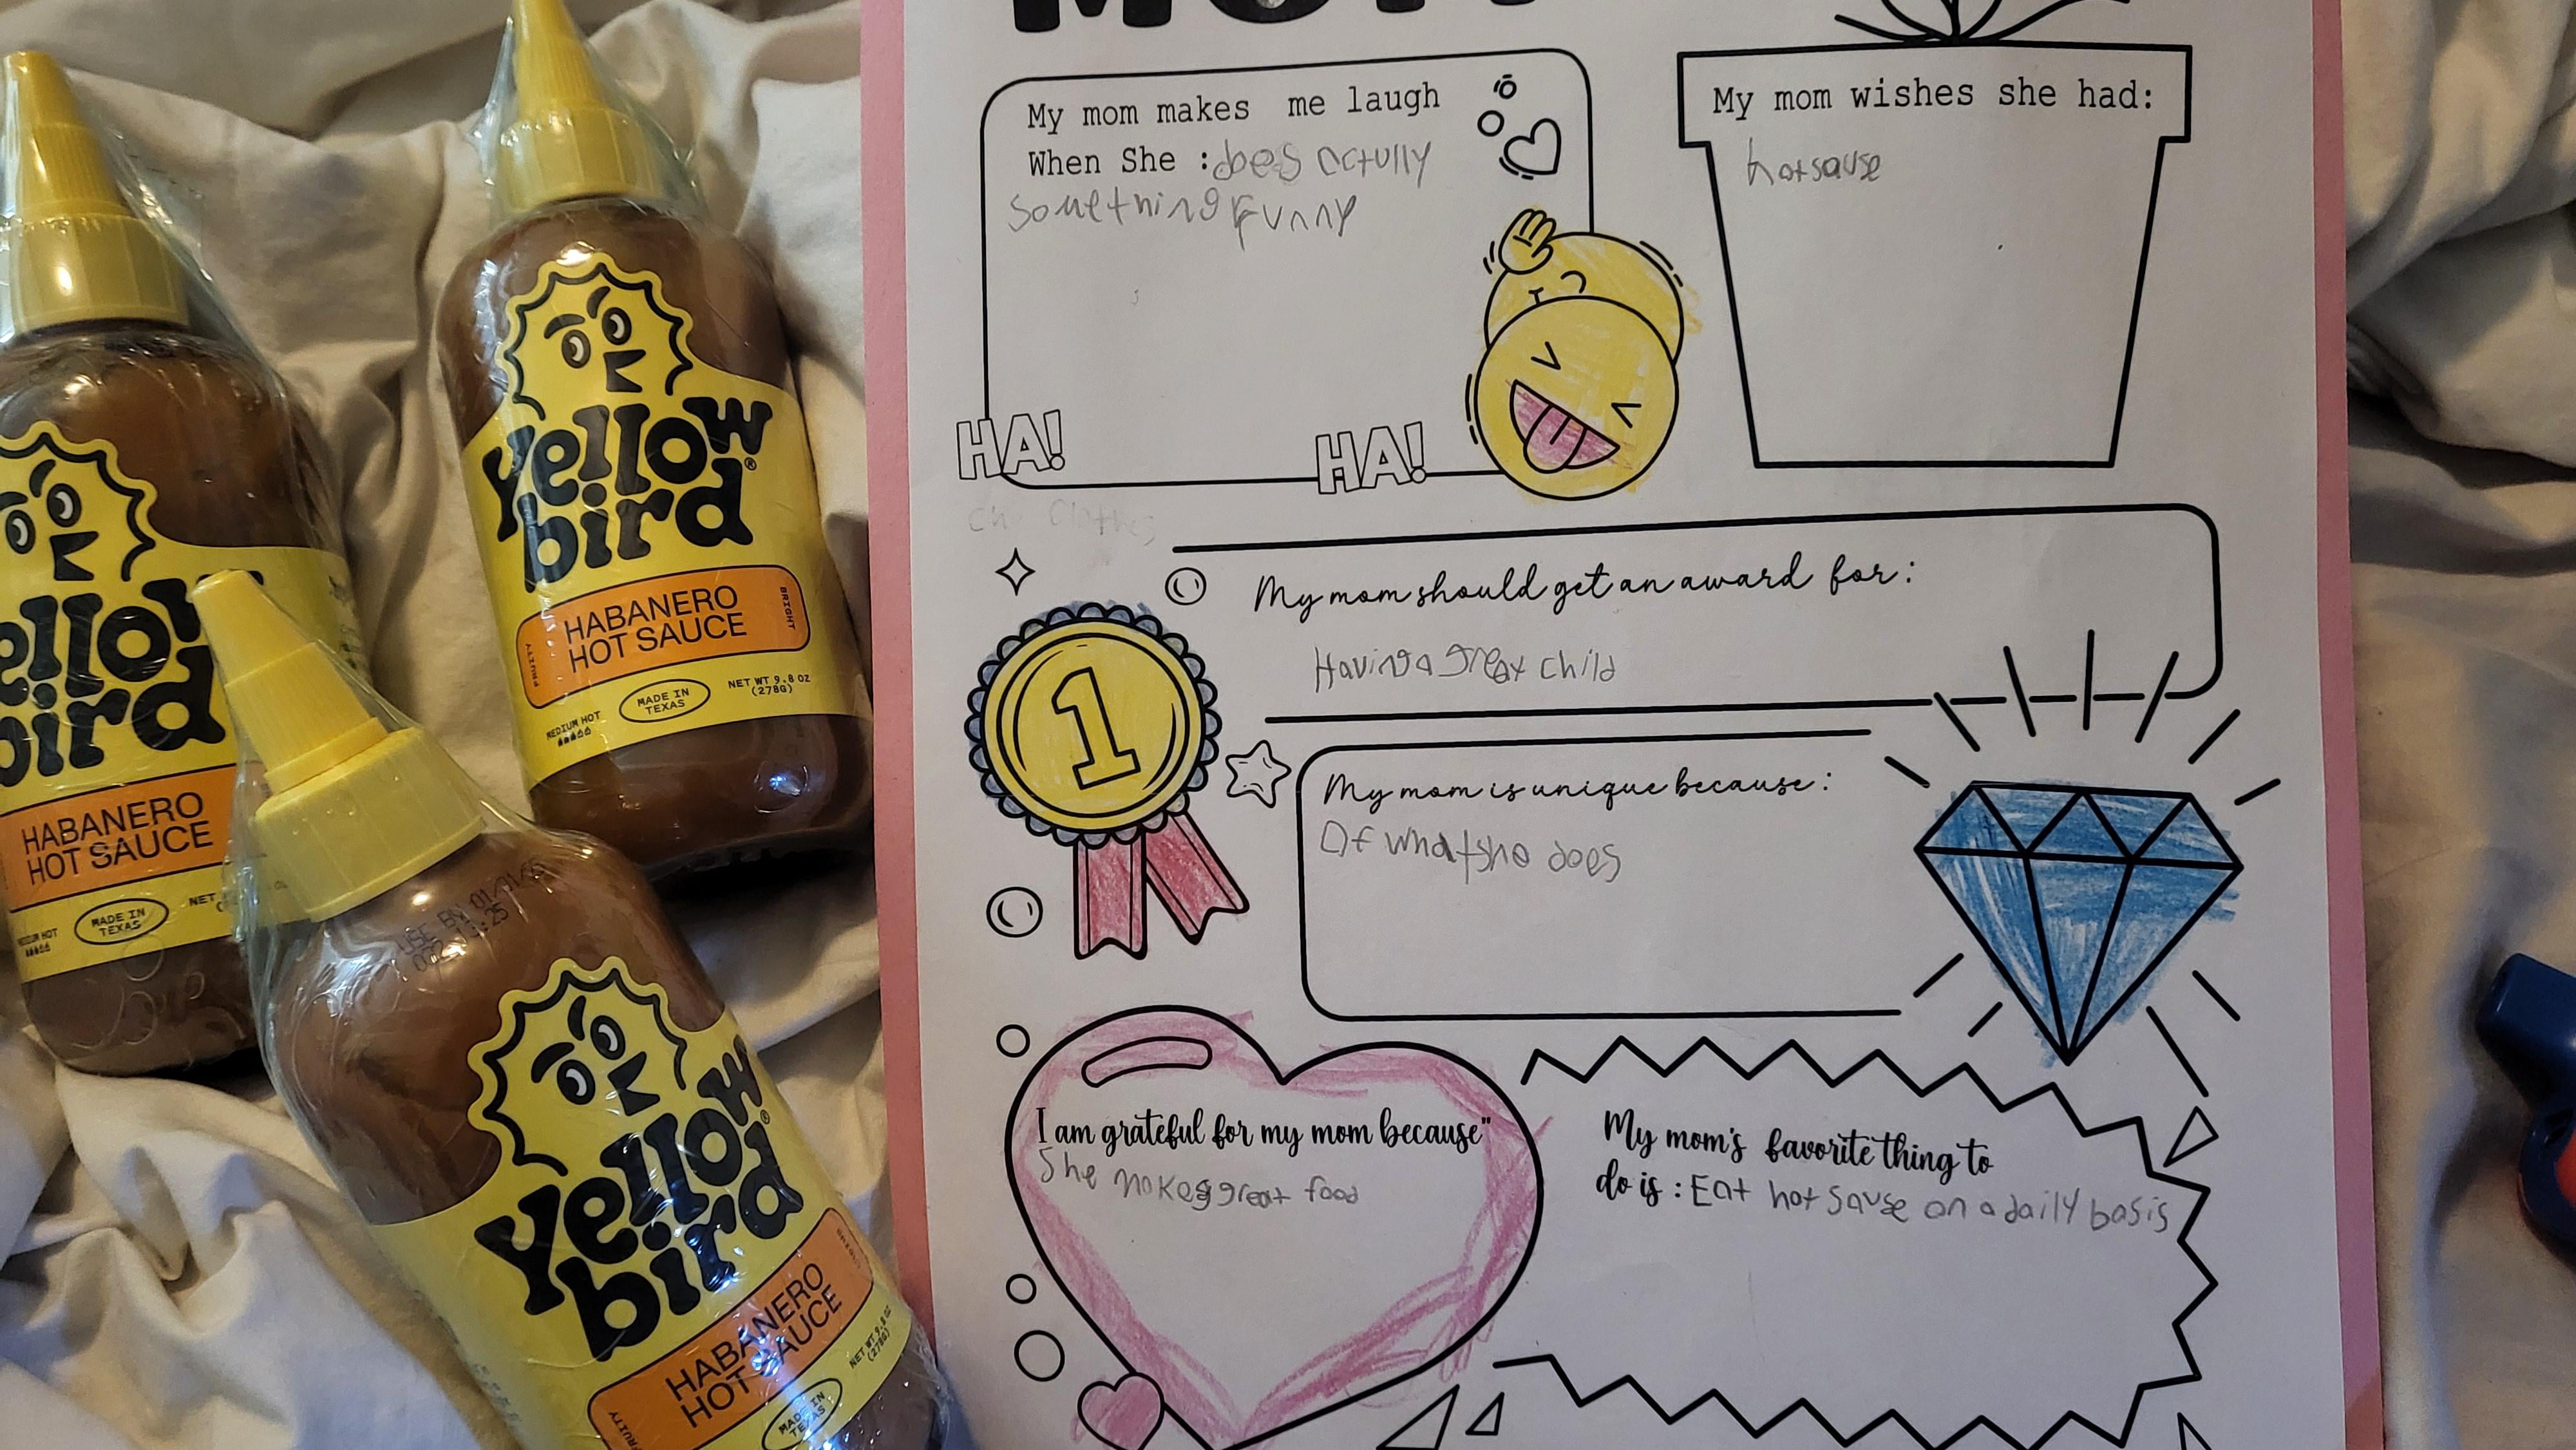 MOM
My mom makes me laugh
When She : does actully
something Funny
HA!
HA!
My mom wishes she had:
hotsause
clothes
My mom should get an award for:
Having a great child
1
My mom is unique because:
Of what she does
I am grateful for my mom because"
She makes great food
My mom's favorite thing to
do is : Eat hot sause on a daily basis
yellow
bird®
HABANERO
HOT SAUCE
FRUITY
BRIGHT
MEDIUM HOT
MADE IN
TEXAS
NET WT 9.8 OZ
(278G)
yellow
bird
HABANERO
HOT SAUCE
MEDIUM HOT
MADE IN
TEXAS
NET
USE BY 01/01/
yellow
bird®
HABANERO
HOT SAUCE
FRUITY
MADE IN
TEXAS
NET WT 9.8 OZ
(278G)